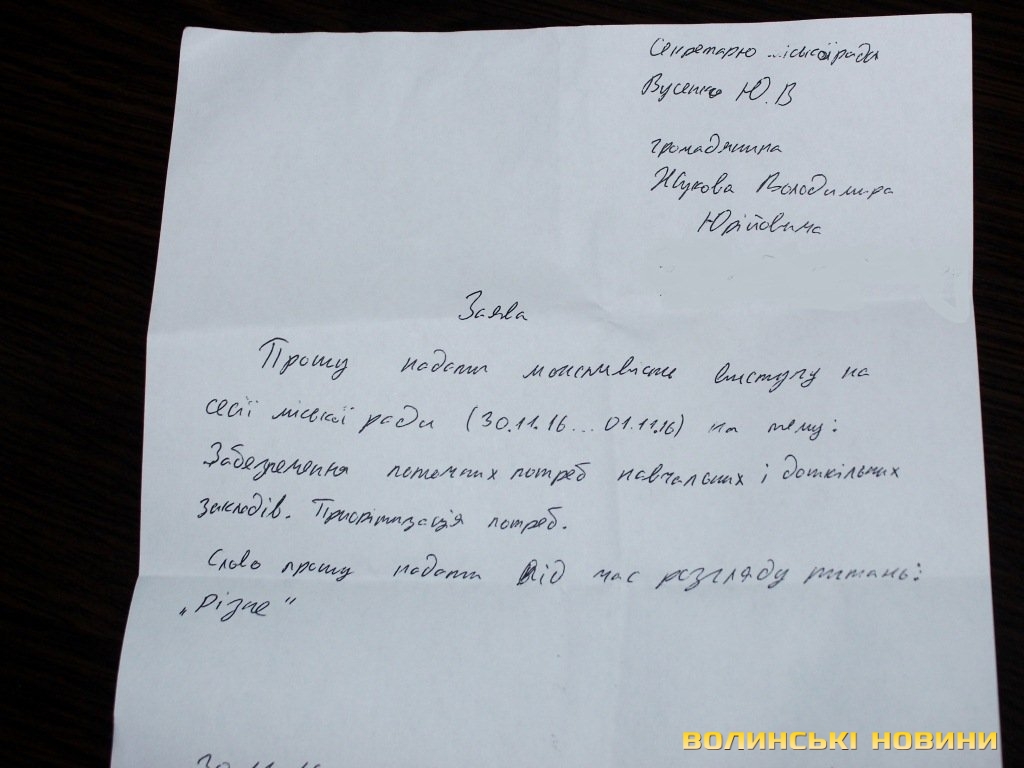 Секретарю міської ради
Вусенко Ю.В
громадянина
Жукова Володимира
Юрійовича
Заява
Прошу надати можливість виступу на
сесії міської ради (30.11.16...01.11.16) на тему:
Забезпечення поточних потреб навчальних і дошкільних
закладів. Пріорітизація потреб.
Слово прошу надати під час розгляду питань:
„Різне"
ВОЛИНСЬКІ НОВИНИ